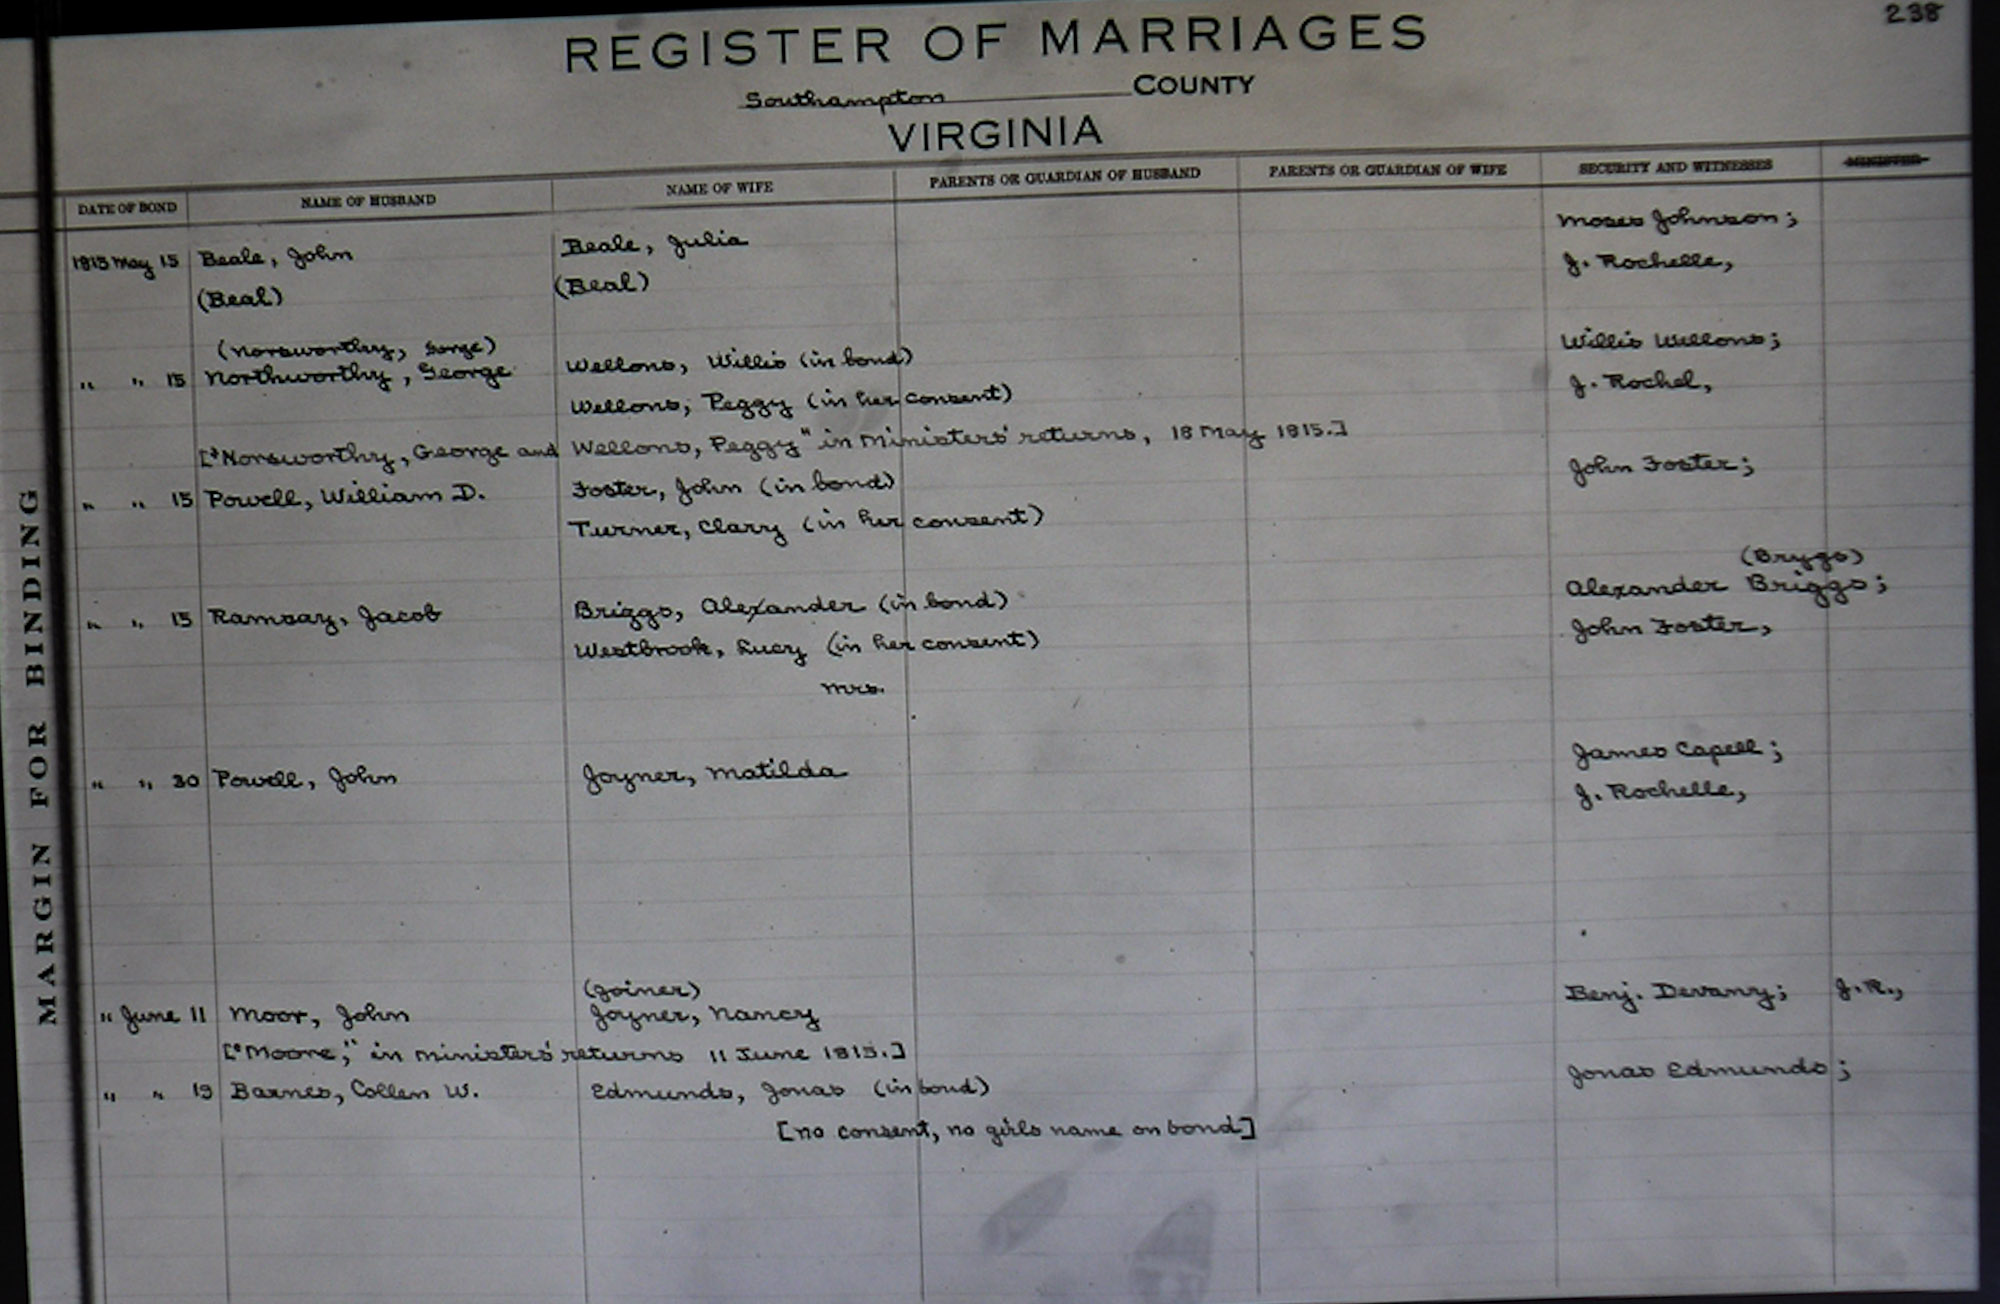 238
REGISTER OF MARRIAGES
Southampton COUNTY
VIRGINIA
DATE OF BOND NAME OF HUSBAND NAME OF WIFE PARENTS OR GUARDIAN OF HUSBAND PARENTS OR GUARDIAN OF WIFE SECURITY AND WITNESSES MINISTER
1815 May 15 Beale, John Beale, Julia Moses Johnson;
(Beal) (Beal) J. Rochelle,
(Norsworthy, Gorge) Willis Wellons;
" " 15 Northworthy, George Wellons, Willis (in bond) J. Rochel,
Wellons, Peggy (in her consent)
["Norsworthy, George and Wellons, Peggy" in ministers' returns, 18 May 1815.]
" " 15 Powell, William D. Foster, John (in bond) John Foster;
Turner, Clary (in her consent)
(Bryggs)
" " 15 Ramsay, Jacob Briggs, Alexander (in bond) Alexander Briggs;
Westbrook, Lucy (in her consent) John Foster,
Mrs.
" " 30 Powell, John Joyner, Matilda James Capell;
J. Rochelle,
(Joiner)
" June 11 Moor, John Joyner, Nancy Benj. Devany; J.R.,
["Moore," in ministers' returns 11 June 1815.]
" " 19 Barnes, Collen W. Edmunds, Jonas (in bond) Jonas Edmunds;
[no consent, no girls name on bond]
MARGIN FOR BINDING